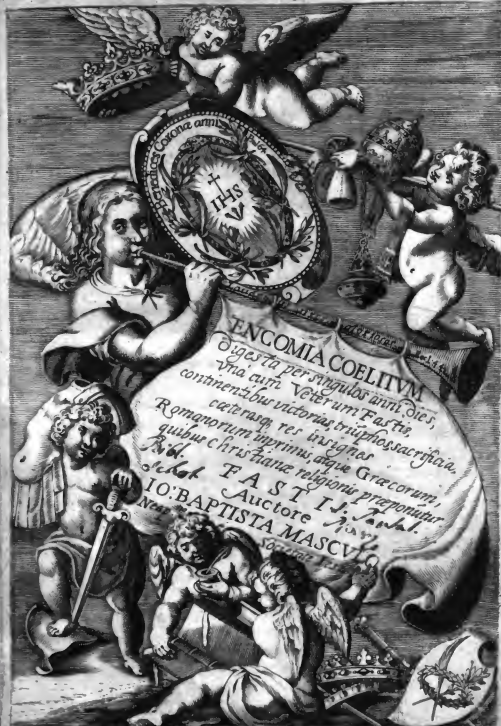 Coronæ anni
IHS
ENCOMIA COELITVM
digesta per singulos anni dies,
vna cum Veterum Fastis
continentibus victorias, triūphos, sacrificia,
cæterasq; res insignes
Romanorum inprimis atque Græcorum,
quibus Christianæ religionis præponūtur
FASTI
Auctore
IO: BAPTISTA MASCVLO